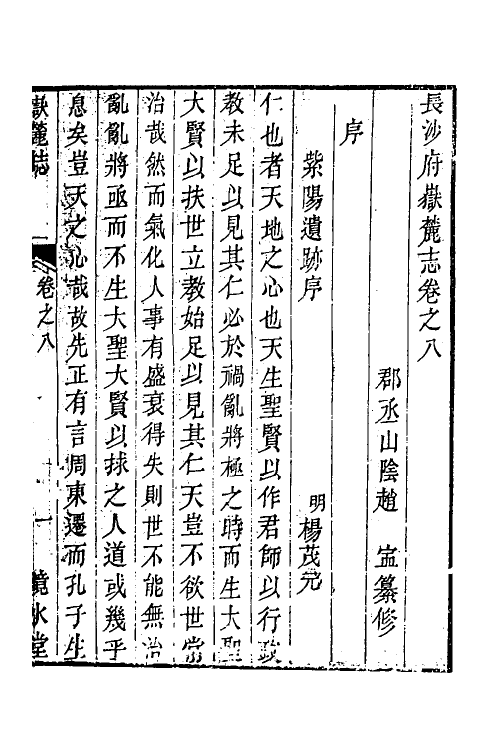 長沙府嶽麓志卷之八
郡丞山陰趙 寍纂修
序
紫陽遺跡序 明楊茂元
仁也者天地之心也天生聖賢以作君師以行政
教未足以見其仁必於禍亂將極之時而生大聖
大賢以扶世立教始足以見其仁天豈不欲世常
治哉然而氣化人事有盛衰得失則世不能無治
亂亂將亟而不生大聖大賢以捄之人道或幾乎
息矣豈天之心哉故先正有言周東遷而孔子生
嶽麓志 卷之八 一 鏡水堂